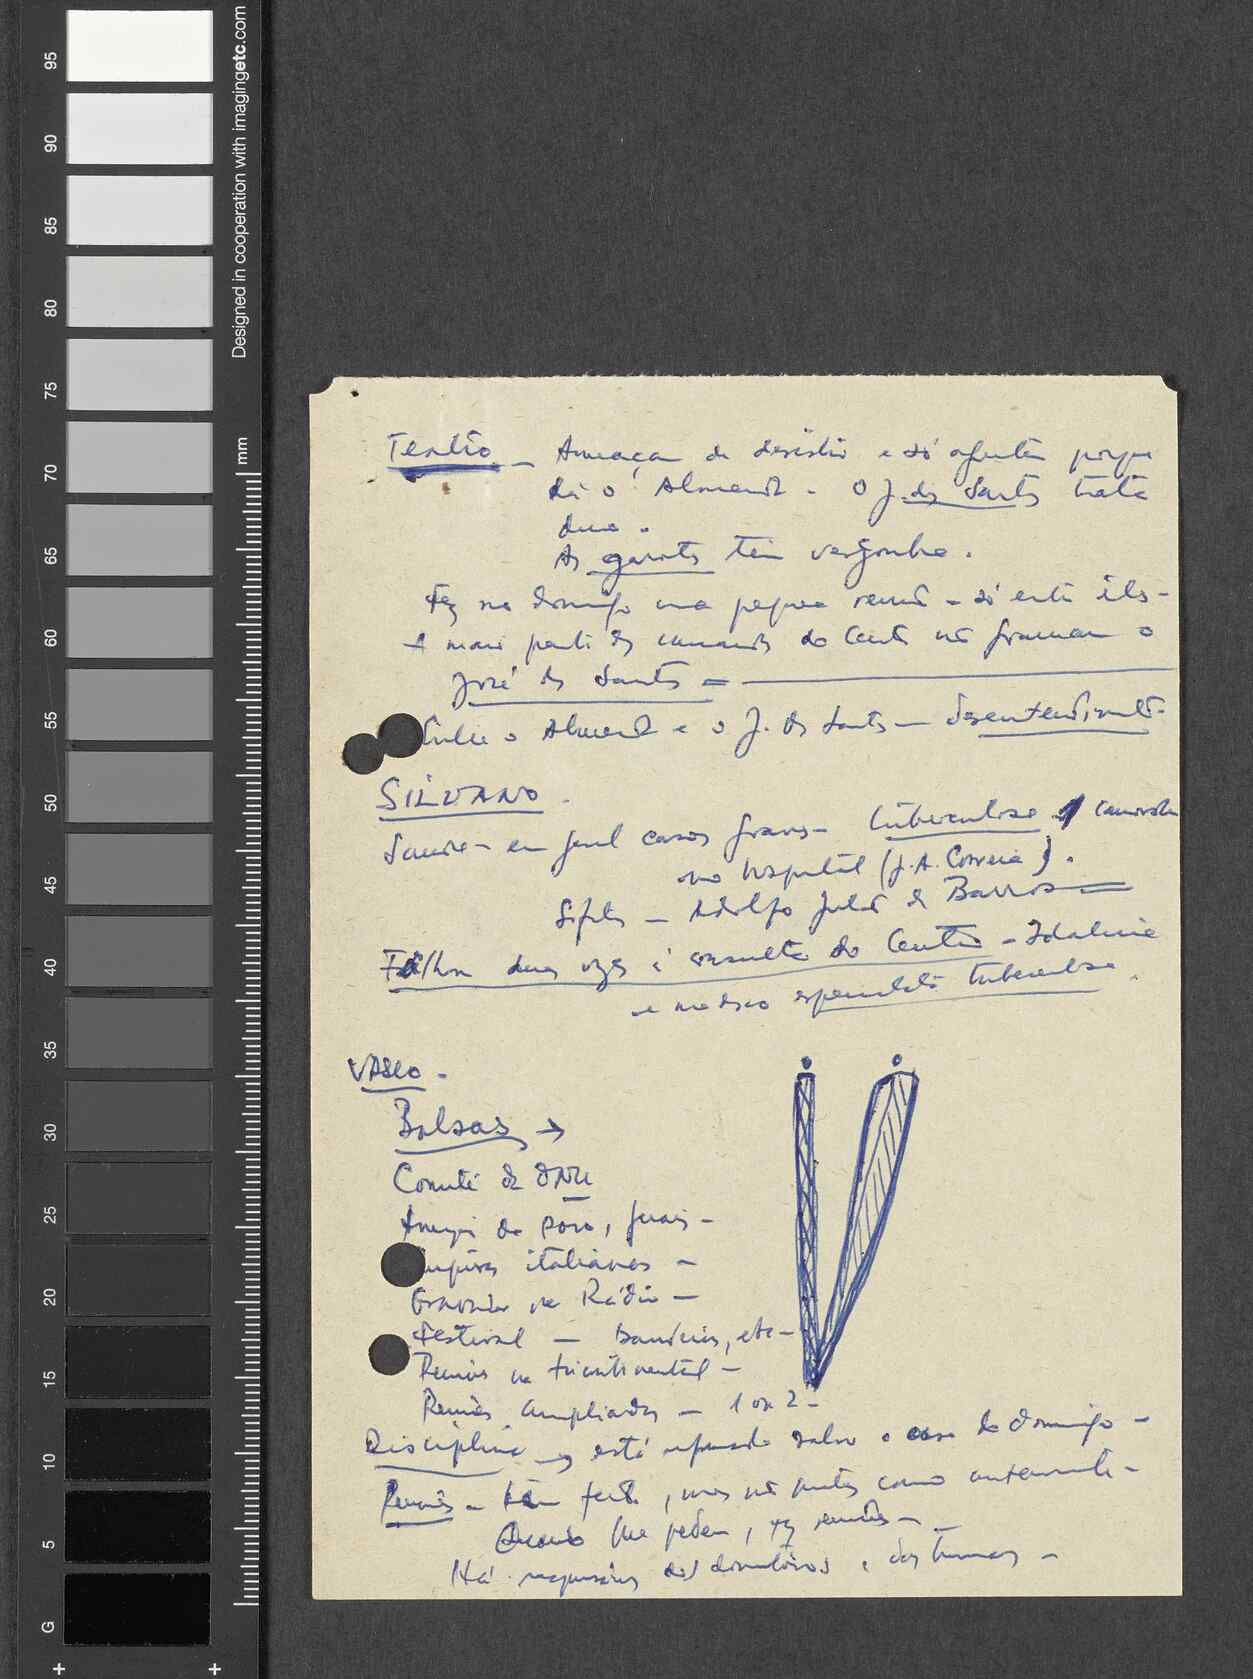 Designed in cooperation with imagingetc.com
mm
95
90
85
80
75
70
65
60
55
50
45
40
35
30
25
20
15
10
5
G
Teatro - Ameaça de desistir e só
dá o Almeida - O J. dos Santos trata
duro.
As garotas têm vergonha.
Fez no domingo uma pequena reunião - só
A maior parte dos camaradas do Centro não gramam o
José dos Santos -
Entre o Almeida e o J. dos Santos - desentendimento -
SILVANO -
Saúde - em geral casos graves - tuberculose 1 camarada
no hospital (J. A. Correia).
Sifilis - Adolfo Julio de Barros
Falhou duas vezes à consulta do Centro - Idalina
e médico especialista tuberculose.
VASCO -
Bolsas →
Comité da ONU
do povo, jornais -
italianos -
Gravador na Rádio -
Festival - bandeiras, etc -
Reunião na tricontinental -
Reuniões ampliadas - 1 ou 2 -
Disciplina → está salvo o caso do domingo -
Reuniões - têm feito, mas não tantas como anteriormente -
Quando lhe pedem, fez reuniões -
Há responsáveis dos dormitórios e das turmas -